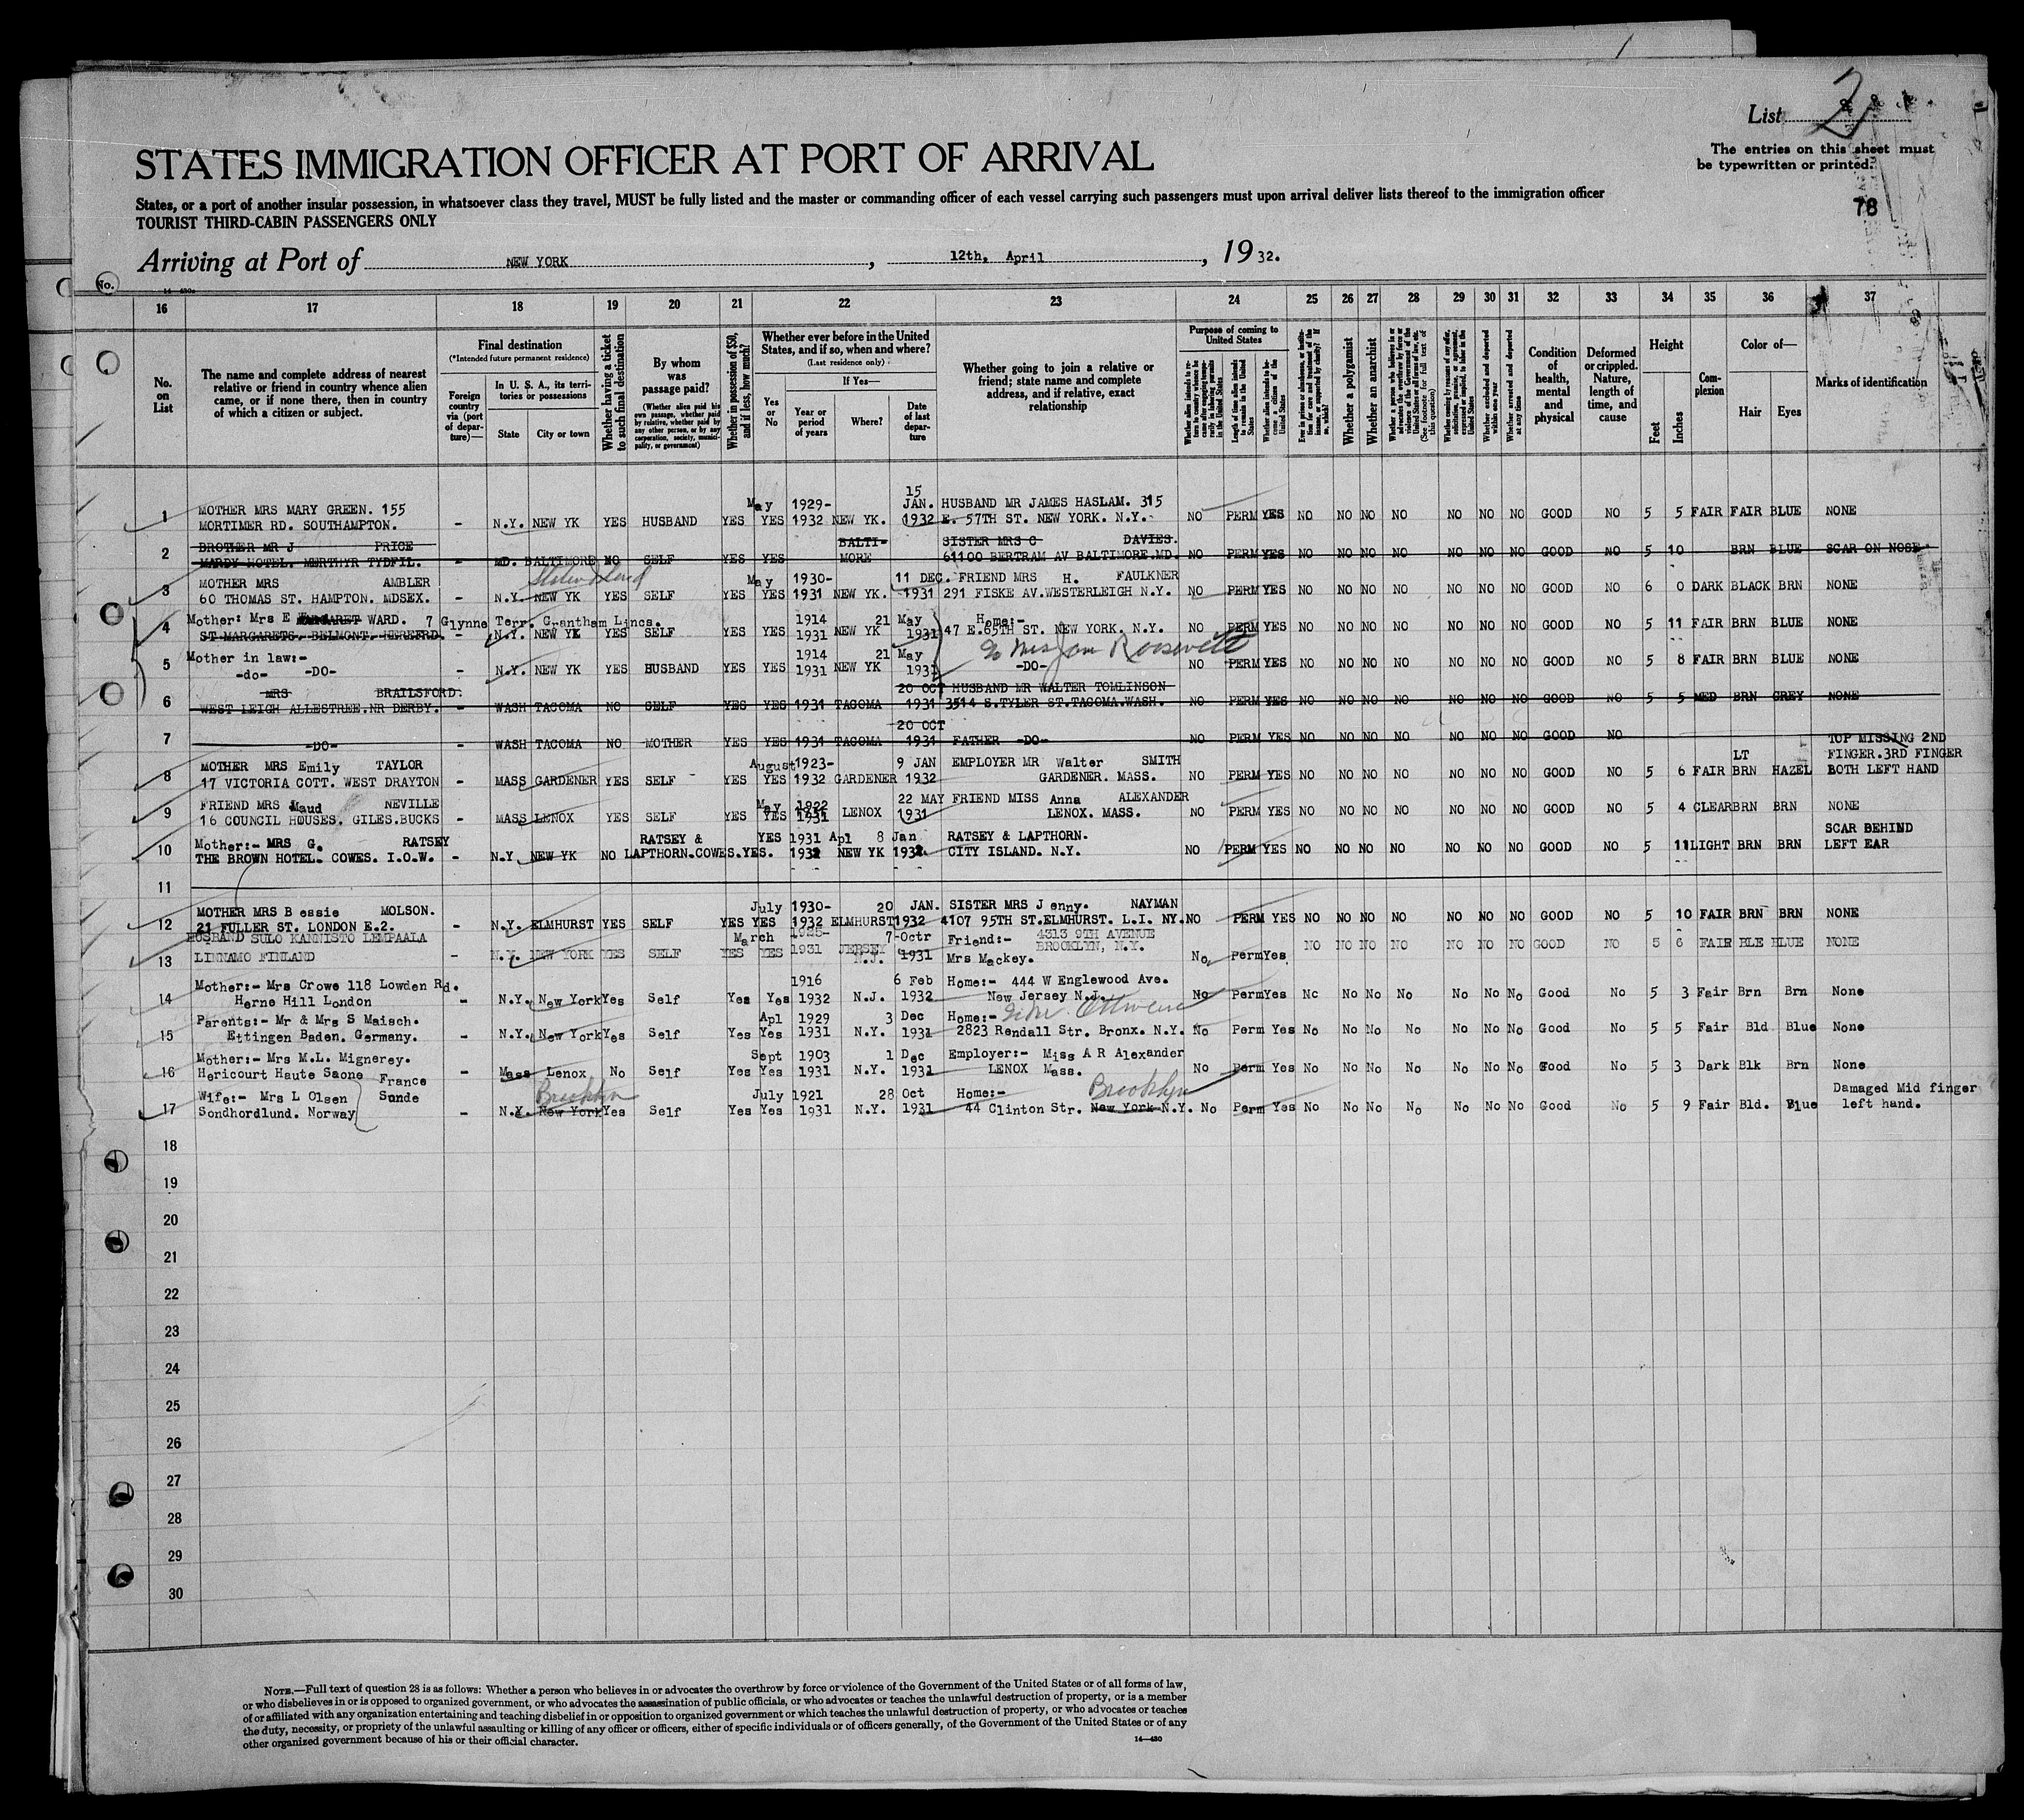 List 2
The entries on this sheet must
be typewritten or printed.
78
STATES IMMIGRATION OFFICER AT PORT OF ARRIVAL
States, or a port of another insular possession, in whatsoever class they travel, MUST be fully listed and the master or commanding officer of each vessel carrying such passengers must upon arrival deliver lists thereof to the immigration officer
TOURIST THIRD-CABIN PASSENGERS ONLY
Arriving at Port of NEW YORK, 12th, April, 1932.
No.
16 17 18 19 20 21 22 23 24 25 26 27 28 29 30 31 32 33 34 35 36 37
No. on List
The name and complete address of nearest relative or friend in country whence alien came, or if none there, then in country of which a citizen or subject.
Final destination
(*Intended future permanent residence)
Foreign country via (port of departure)—
In U. S. A., its territories or possessions
State
City or town
Whether having a ticket to such final destination
By whom was passage paid?
(Whether alien paid his own passage, whether paid by relative, whether paid by any other person, or by any corporation, society, municipality, or government)
Whether in possession of $50, and if less, how much?
Whether ever before in the United States, and if so, when and where?
(Last residence only)
Yes or No
If Yes—
Year or period of years
Where?
Date of last departure
Whether going to join a relative or friend; state name and complete address, and if relative, exact relationship
Purpose of coming to United States
Whether alien intends to return to country whence he came after engaging temporarily in laboring pursuits in the United States
Length of time alien intends to remain in the United States
Whether alien intends to become a citizen of the United States
Whether a polygamist
Whether an anarchist
Whether excluded and deported within one year
Whether arrested and deported at any time
Condition of health, mental and physical
Deformed or crippled. Nature, length of time, and cause
Height
Feet
Inches
Complexion
Color of—
Hair
Eyes
Marks of identification
1 MOTHER MRS MARY GREEN. 155 MORTIMER RD. SOUTHAMPTON. - N.Y. NEW YK YES HUSBAND YES May YES 1929-1932 NEW YK. 15 JAN. 1932 HUSBAND MR JAMES HASLAM. 315 E. 57TH ST. NEW YORK. N.Y. NO PERM YES NO NO NO NO NO NO NO GOOD NO 5 5 FAIR FAIR BLUE NONE
2 BROTHER MR J PRICE MARDY HOTEL. MERTHYR TYDFIL. - MD. BALTIMORE NO SELF YES YES BALTI-MORE SISTER MRS C DAVIES. 61100 BERTRAM AV BALTIMORE.MD. NO PERM YES NO NO NO NO NO NO NO GOOD NO 5 10 BRN BLUE SCAR ON NOSE
3 MOTHER MRS AMBLER 60 THOMAS ST. HAMPTON. MDSEX. - N.Y. NEW YK Staten Island YES SELF YES May YES 1930-1931 NEW YK. 11 DEC. 1931 FRIEND MRS H. FAULKNER 291 FISKE AV.WESTERLEIGH N.Y. NO PERM YES NO NO NO NO NO NO NO GOOD NO 6 0 DARK BLACK BRN NONE
4 Mother: Mrs E MARGARET WARD. 7 Glynne Terr. Grantham Lincs. ST MARGARETS. BELMONT. HEREFRD. - N.Y. NEW YK YES SELF YES YES 1914 1931 NEW YK 21 May 1931 Home:- 47 E.65TH ST. NEW YORK. N.Y. NO PERM YES NO NO NO NO NO NO NO GOOD NO 5 11 FAIR BRN BLUE NONE
to Mrs Jas Roosevelt
5 Mother in law:- -do- -DO- - N.Y. NEW YK YES HUSBAND YES YES 1914 1931 NEW YK 21 May 1931 -DO- NO PERM YES NO NO NO NO NO NO NO GOOD NO 5 8 FAIR BRN BLUE NONE
6 MRS BRAILSFORD. WEST LEIGH ALLESTREE.NR DERBY. - WASH TACOMA NO SELF YES YES 1931 TACOMA 20 OCT 1931 HUSBAND MR WALTER TOMLINSON 3514 S.TYLER ST.TACOMA.WASH. NO PERM YES NO NO NO NO NO NO NO GOOD NO 5 5 MED BRN GREY NONE
7 -DO- - WASH TACOMA NO MOTHER YES YES 1931 TACOMA 20 OCT 1931 FATHER -DO- NO PERM YES NO NO NO NO NO NO NO GOOD NO
8 MOTHER MRS Emily TAYLOR 17 VICTORIA COTT. WEST DRAYTON - MASS GARDENER YES SELF YES August YES 1923-1932 GARDENER 9 JAN 1932 EMPLOYER MR Walter SMITH GARDENER. MASS. NO PERM YES NO NO NO NO NO NO NO GOOD NO 5 6 FAIR LT BRN HAZEL TOP MISSING 2ND FINGER.3RD FINGER BOTH LEFT HAND
9 FRIEND MRS Maud NEVILLE 16 COUNCIL HOUSES. GILES.BUCKS - MASS LENOX YES SELF YES May YES 1922 1931 LENOX 22 MAY 1931 FRIEND MISS Anna ALEXANDER LENOX. MASS. NO PERM YES NO NO NO NO NO NO NO GOOD NO 5 4 CLEAR BRN BRN NONE
10 Mother:- MRS G. RATSEY THE BROWN HOTEL. COWES. I.O.W. - N.Y. NEW YK NO RATSEY & LAPTHORN.COWES. YES. YES 1931 Apl 1932 NEW YK 8 Jan 1932. RATSEY & LAPTHORN. CITY ISLAND. N.Y. NO PERM YES NO NO NO NO NO NO NO GOOD NO 5 11 LIGHT BRN BRN SCAR BEHIND LEFT EAR
11
12 MOTHER MRS Bessie MOLSON. 21 FULLER ST. LONDON E.2. - N.Y. ELMHURST YES SELF YES July YES 1930-1932 ELMHURST 20 JAN. 1932 SISTER MRS Jenny. NAYMAN 4107 95TH ST.ELMHURST. L.I. NY. NO PERM YES NO NO NO NO NO NO NO GOOD NO 5 10 FAIR BRN BRN NONE
13 HUSBAND SULO KANNISTO LEMPAALA LINNAMO FINLAND - N.Y. NEW YORK YES SELF YES March YES 1931 JERSEY N.J. 7 Octr 1931 Friend:- Mrs Mackey. 4313 9TH AVENUE BROOKLYN, N.Y. No Perm Yes NO NO NO NO NO NO NO GOOD NO 5 6 FAIR BLE BLUE NONE
14 Mother:- Mrs Crowe 118 Lowden Rd. Herne Hill London - N.Y. New York Yes Self Yes Yes 1916 1932 N.J. 6 Feb 1932 Home:- 444 W Englewood Ave. New Jersey N.J. No Perm Yes No No No No No No No Good No 5 3 Fair Brn Brn None
15 Parents:- Mr & Mrs S Maisch. Ettingen Baden. Germany. - N.Y. New York Yes Self Yes Apl Yes 1929 1931 N.Y. 3 Dec 1931 Home:- 2823 Rendall Str. Bronx. N.Y. No Perm Yes No No No No No No No Good No 5 5 Fair Bld Blue None
16 Mother:- Mrs M.L. Mignerey. Hericourt Haute Saone France - Mass Lenox No Self Yes Sept Yes 1903 1931 N.Y. 1 Dec 1931 Employer:- Miss A R Alexander LENOX Mass. No Perm Yes No No No No No No No Good No 5 3 Dark Blk Brn None
17 Wife:- Mrs L Olsen Sande Sondhordlund. Norway - N.Y. New York Brooklyn Yes Self Yes July Yes 1921 1931 N.Y. 28 Oct 1931 Home:- 44 Clinton Str. New York N.Y. Brooklyn No Perm Yes No No No No No No No Good No 5 9 Fair Bld. Blue Damaged Mid finger left hand.
18
19
20
21
22
23
24
25
26
27
28
29
30
NOTE.—Full text of question 28 is as follows: Whether a person who believes in or advocates the overthrow by force or violence of the Government of the United States or of all forms of law,
or who disbelieves in or is opposed to organized government, or who advocates the assassination of public officials, or who advocates or teaches the unlawful destruction of property, or is a member
of or affiliated with any organization entertaining and teaching disbelief in or opposition to organized government or which teaches the unlawful destruction of property, or who advocates or teaches
the duty, necessity, or propriety of the unlawful assaulting or killing of any officer or officers, either of specific individuals or of officers generally, of the Government of the United States or of any
other organized government because of his or their official character.
14—430